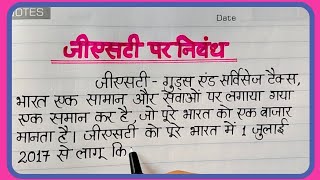 NOTES
Date
जीएसटी पर निबंध
जीएसटी - गुड्स एंड सर्विसेज टैक्स,
भारत एक सामान और सेवाओं पर लगाया गया
एक समान कर है, जो पूरे भारत को एक बाजार
मानता है। जीएसटी को पूरे भारत में 1 जुलाई
2017 से लागू कि